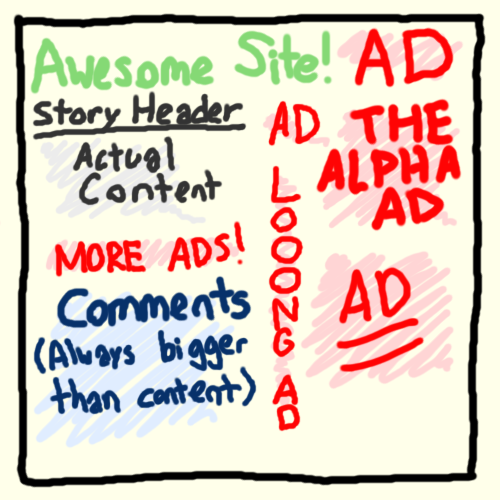 Awesome Site!
Story Header
Actual
Content
MORE ADS!
Comments
(Always bigger
than content)
AD
LOOONG AD
AD
THE
ALPHA
AD
AD